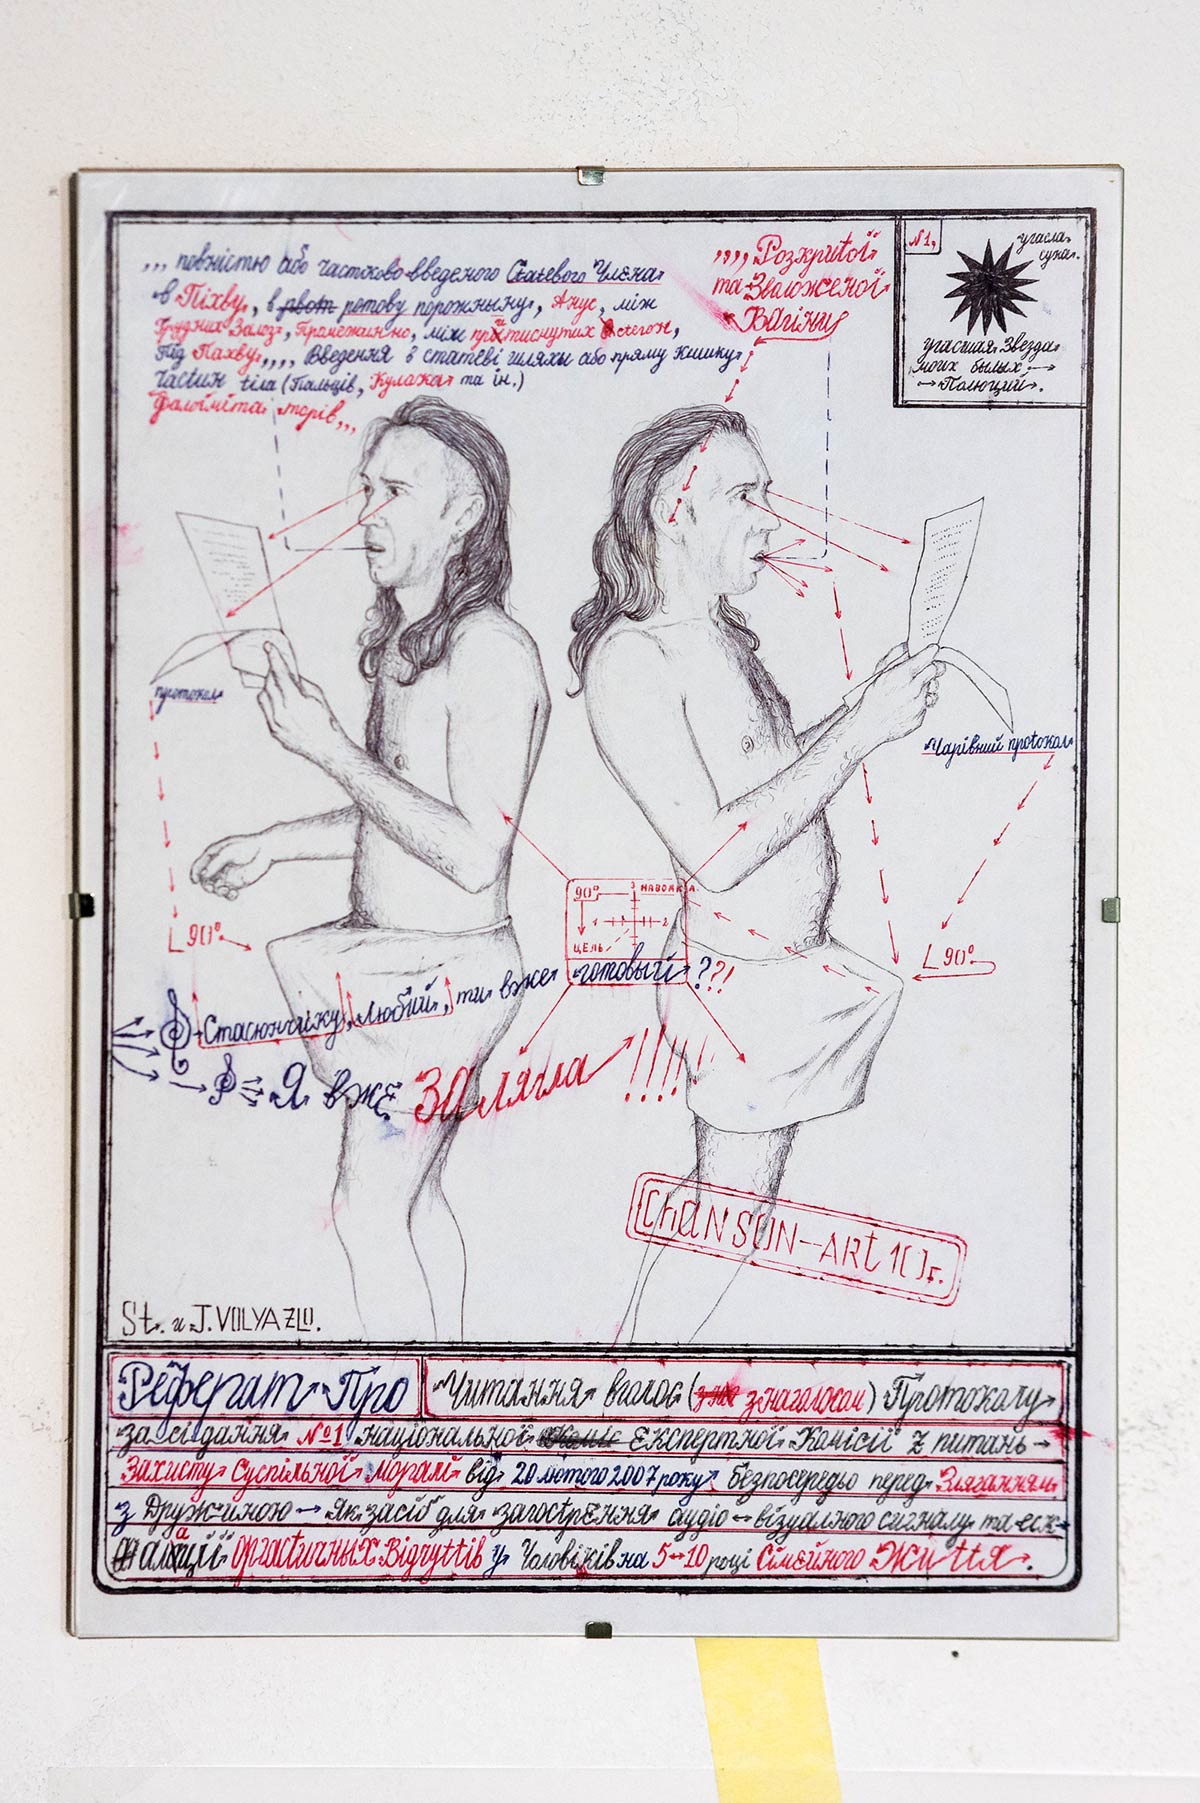 ,,, повністю або частково введеного Статевого Члена
в Піхву, в ротову порожнину, Анус, між
Грудних Залоз, Промежинно, між притиснутих Стегон,
Під Пахву,,,, Введення в статеві шляхи або пряму Кишку
Частин тіла (Пальців, Кулака та ін.)
Фалоіміта торів,,,
,,,, Розкритої
та Зволоженої
Вагіни
№1,
угасла
сука.
угасшая Звезда
моих былых
Полюций.
протокол
Чарівний протокол
90°
90°
90°
3 НАВОДКА
1 2
ЦЕЛЬ
Стасюнчику, Любий, ти вже готовый ??!
Я вже ЗАлягла !!!!!
ChANSON-ARt 10г.
St. и J. VOLYAZLO.
Реферат Про
Читання вголос (з наголосом) Протоколу
засідання №1 Національної Експертної Комісії z питань
Захисту Суспільної Моралі від 20 лютого 2007 року безпосередьо перед Зляганням
з Дружиною Як засіб для загострЕння аудіо візуального сигналу та еск
алації Оргастичных Відчуттів у Чоловіків на 5-10 році Сімейного Життя.